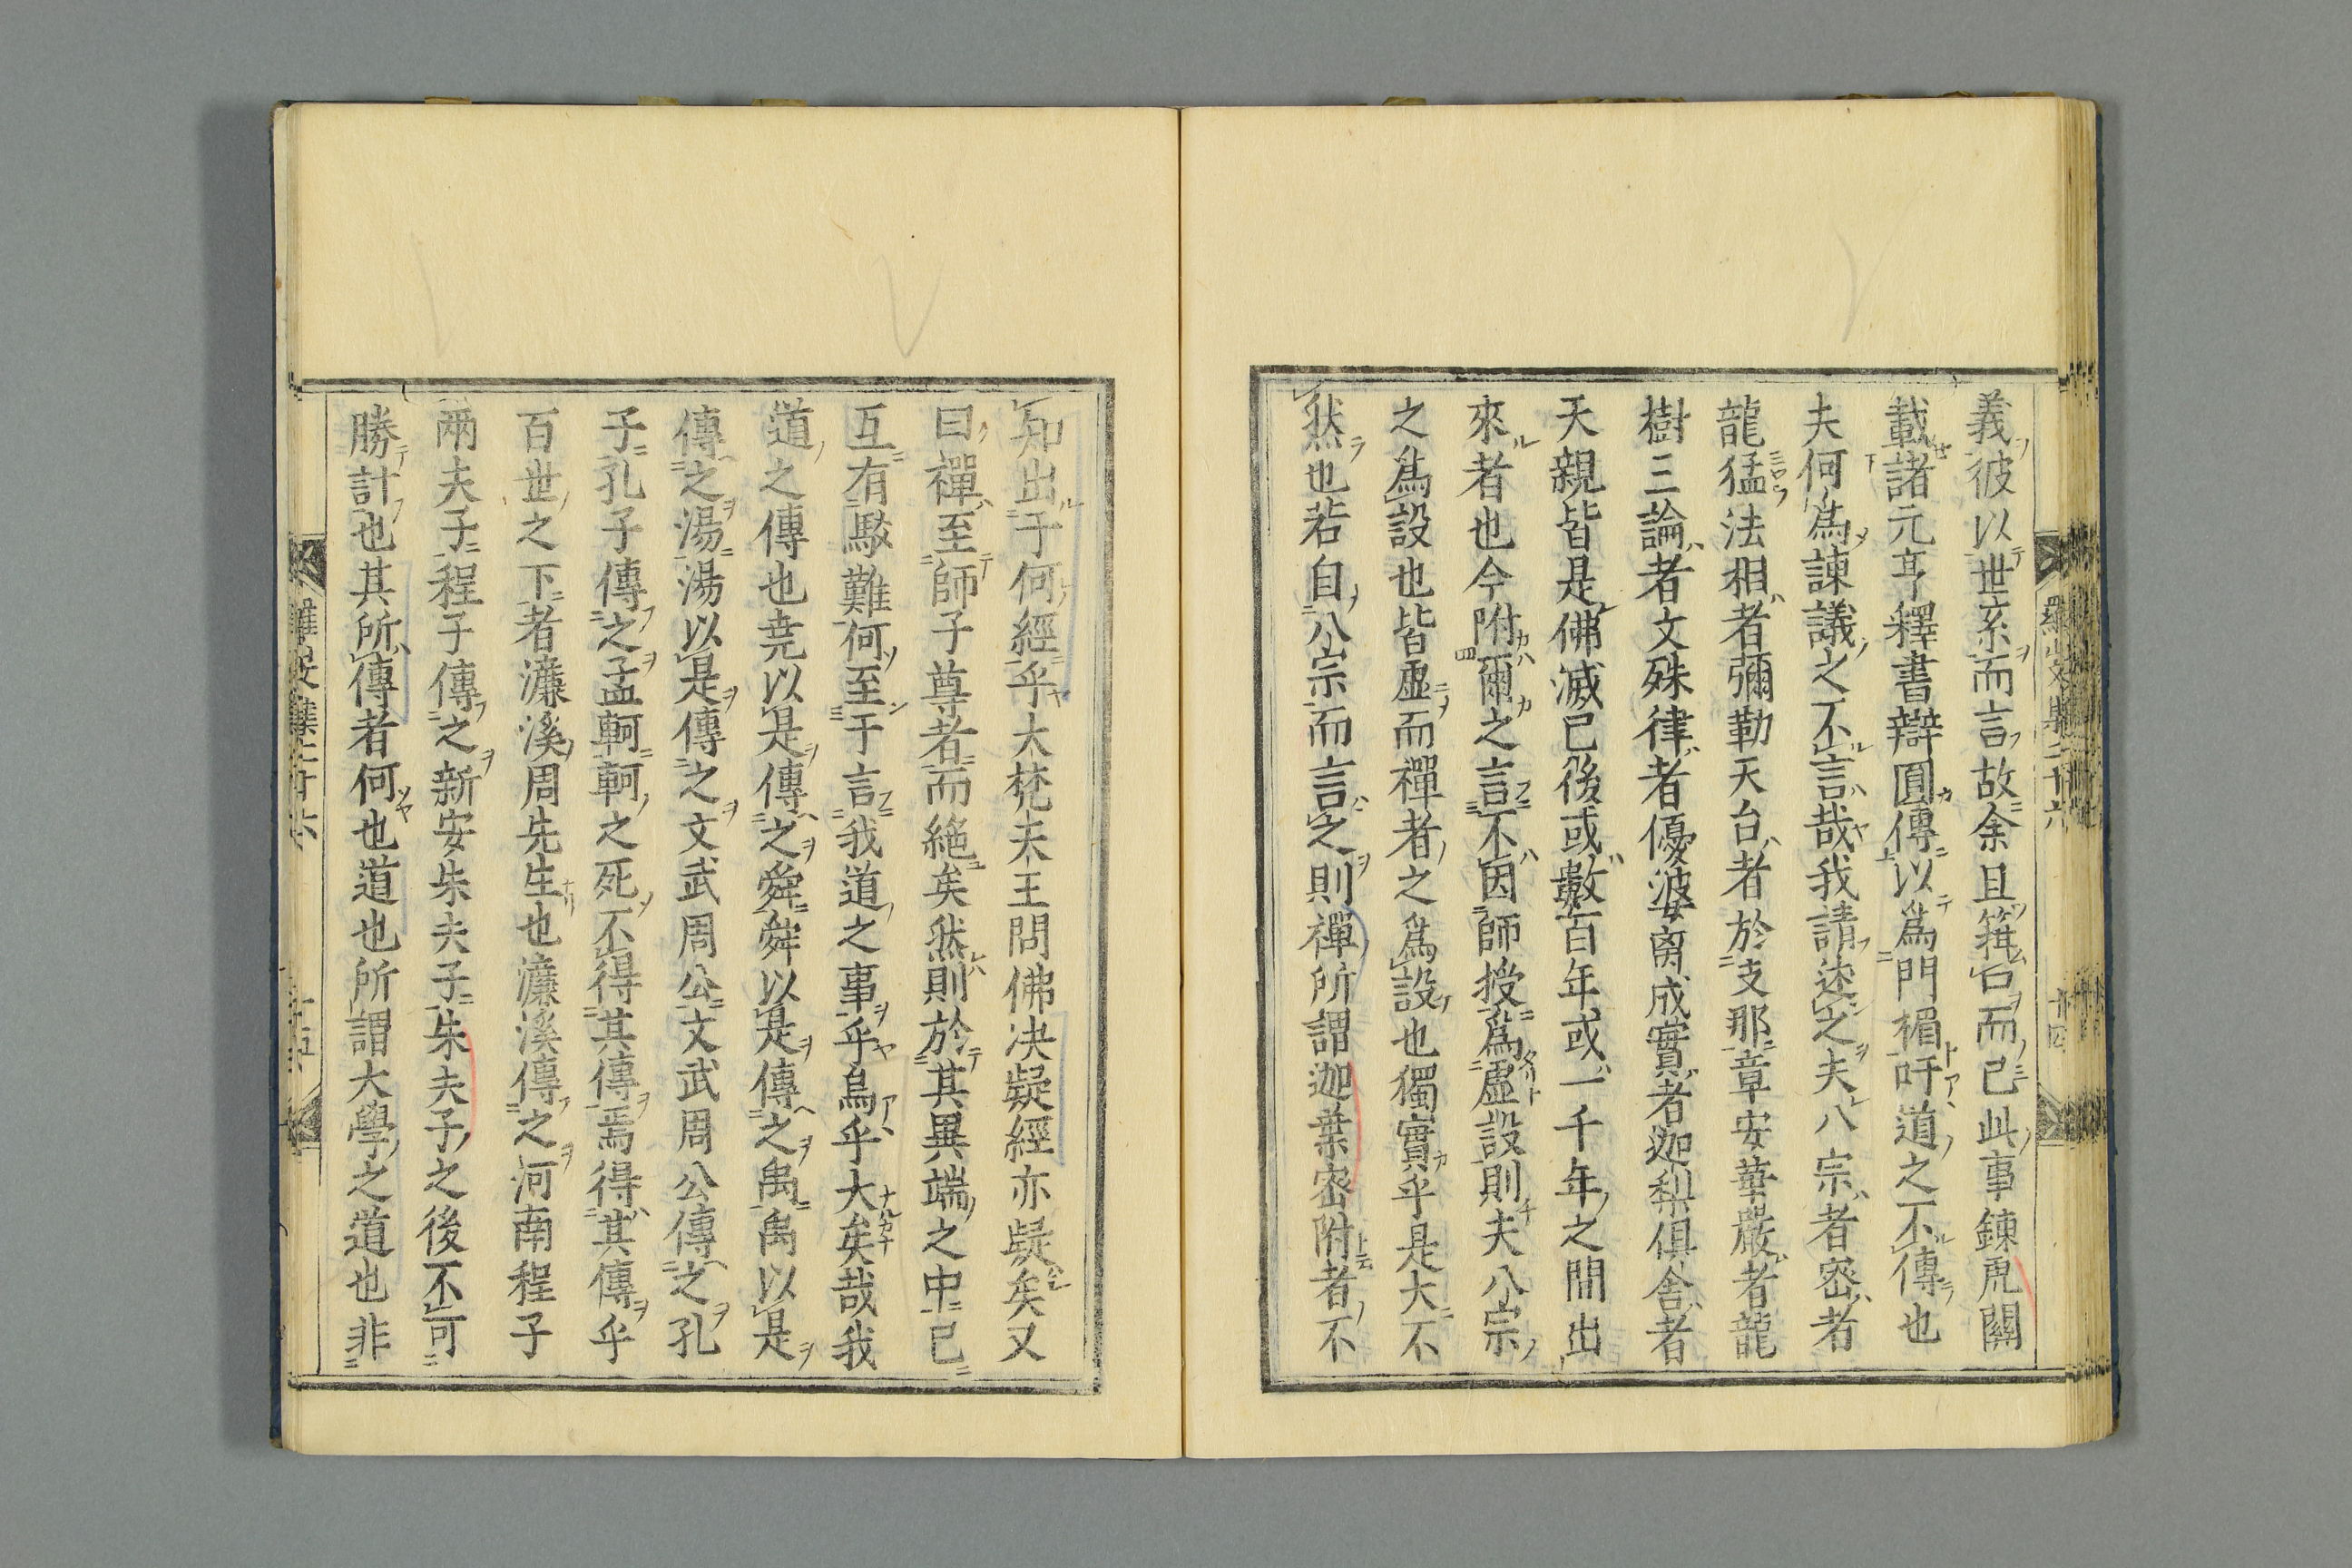 義彼以世系而言故余且箝口而已此事錬虎關
載諸元亨釋書辯圓傳以爲門楣吁道之不傳也
夫何爲諌議之不言哉我請述之夫八宗者密者
龍猛法相者彌勒天台者於支那章安華嚴者龍
樹三論者文殊律者優婆离成實者迦梨倶舎者
天親皆是佛滅已後或數百年或一千年之間出
來者也今附爾之言不因師授爲虚設則夫八宗
之爲設也皆虚而禪者之爲設也獨實乎是大不
然也若自八宗而言之則禪所謂迦葉密附者不
知出于何經乎大梵夫王問佛决疑經亦疑矣又
曰禪至師子尊者而絶矣然則於其異端之中已
互有駁難何至于言我道之事乎烏乎大矣哉我
道之傳也尭以是傳之舜舜以是傳之禹禹以是
傳之湯湯以是傳之文武周公文武周公傳之孔
子孔子傳之孟軻軻之死不得其傳焉得其傳乎
百世之下者濂溪周先生也濂溪傳之河南程子
兩夫子程子傳之新安朱夫子朱夫子之後不可
勝計也其所傳者何也道也所謂大學之道也非